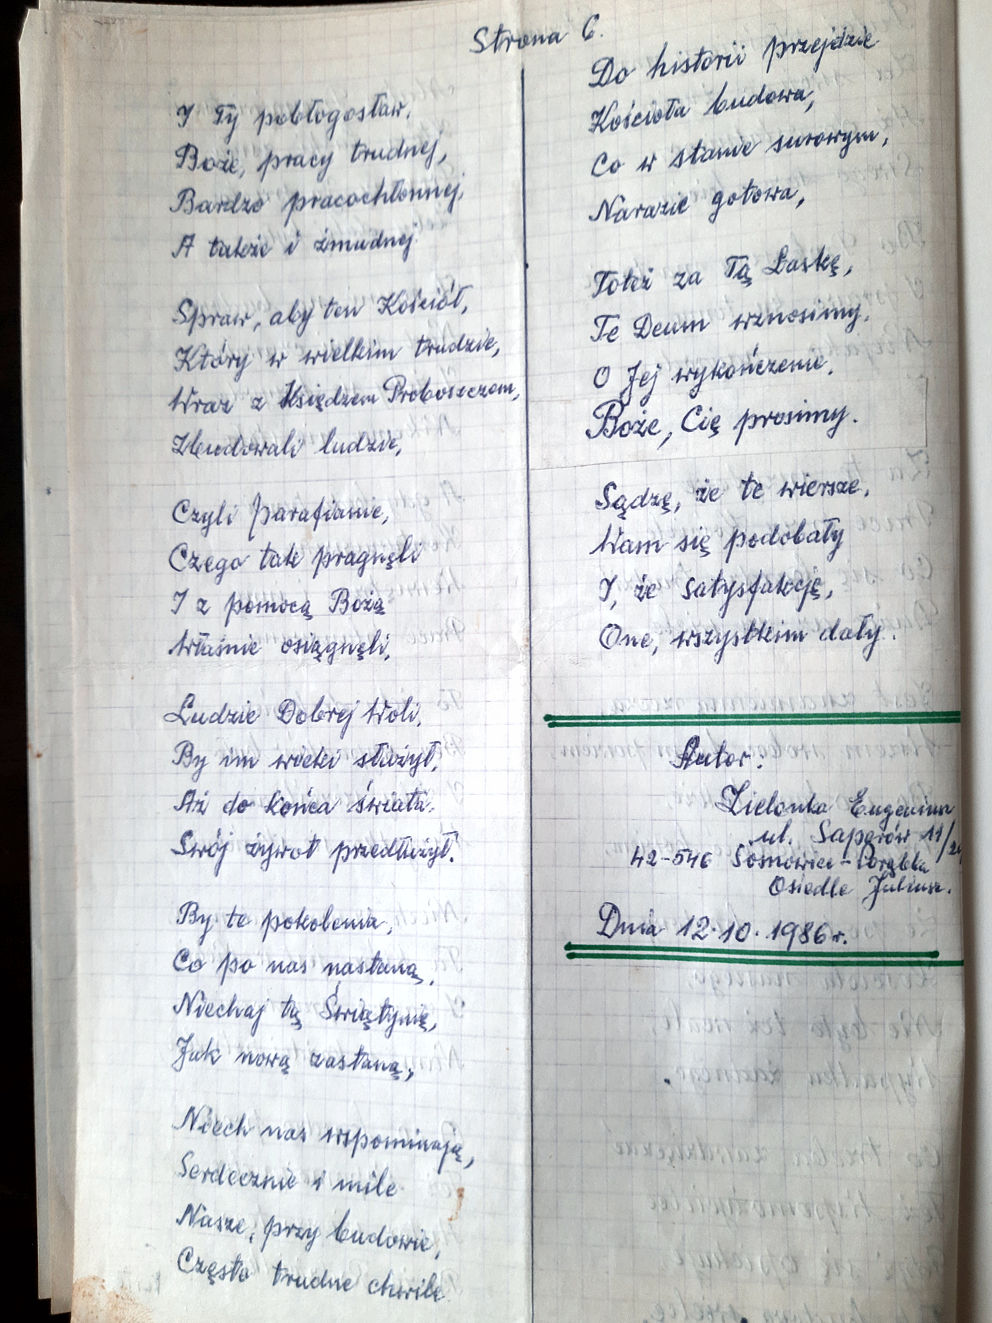 Strona 6.
I Ty pobłogosław,
Boże, pracy trudnej,
Bardzo pracochłonnej,
A także i żmudnej.
Spraw, aby ten Kościół,
Który w wielkim trudzie,
Wraz z Księdzem Proboszczem,
Zbudowali ludzie,
Czyli parafianie,
Czego tak pragnęli
I z pomocą Bożą
Właśnie osiągnęli,
Ludzie Dobrej Woli,
By im wieki służył,
Aż do końca świata.
Swój żywot przedłużył.
By te pokolenia,
Co po nas nastaną,
Niechaj tą Świątynię,
Jak nową zastaną,
Niech nas wspominają,
Serdecznie i mile
Nasze, przy budowie,
Często trudne chwile
Do historii przejdzie
Kościoła budowa,
Co w stanie surowym,
Narazie gotowa,
Toteż za Tą Łaskę,
Te Deum wznosimy,
O Jej wykończenie,
Boże, Cię prosimy.
Sądzę, że te wiersze,
Wam się podobały
I, że satysfakcję,
One, wszystkim dały.
Autor:
Zielonka Eugeniusz
ul. Saperów 11/
42-546 Sosnowiec-Porąbka
Osiedle Juliusz.
Dnia 12.10.1986r.